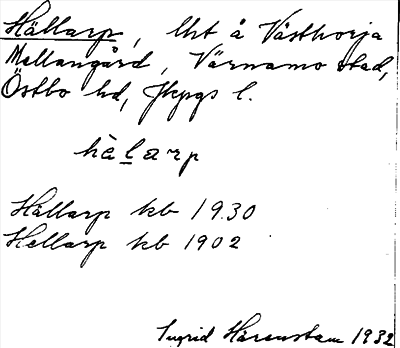 Hällarp, lht å Västhorja
Mellangård, Värnamo stad,
Östbo hd, Jkpgs l.
hælarp
Hällarp kb 1930
Hellarp kb 1902
Ingrid Härenstam 1932